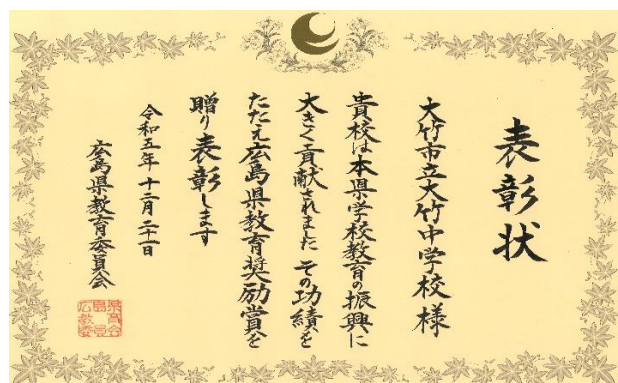 表彰状
大竹市立大竹中学校様
貴校は本県学校教育の振興に
大きく貢献されました その功績を
たたえ広島県教育奨励賞を
贈り表彰します
令和五年十二月二十一日
広島県教育委員会